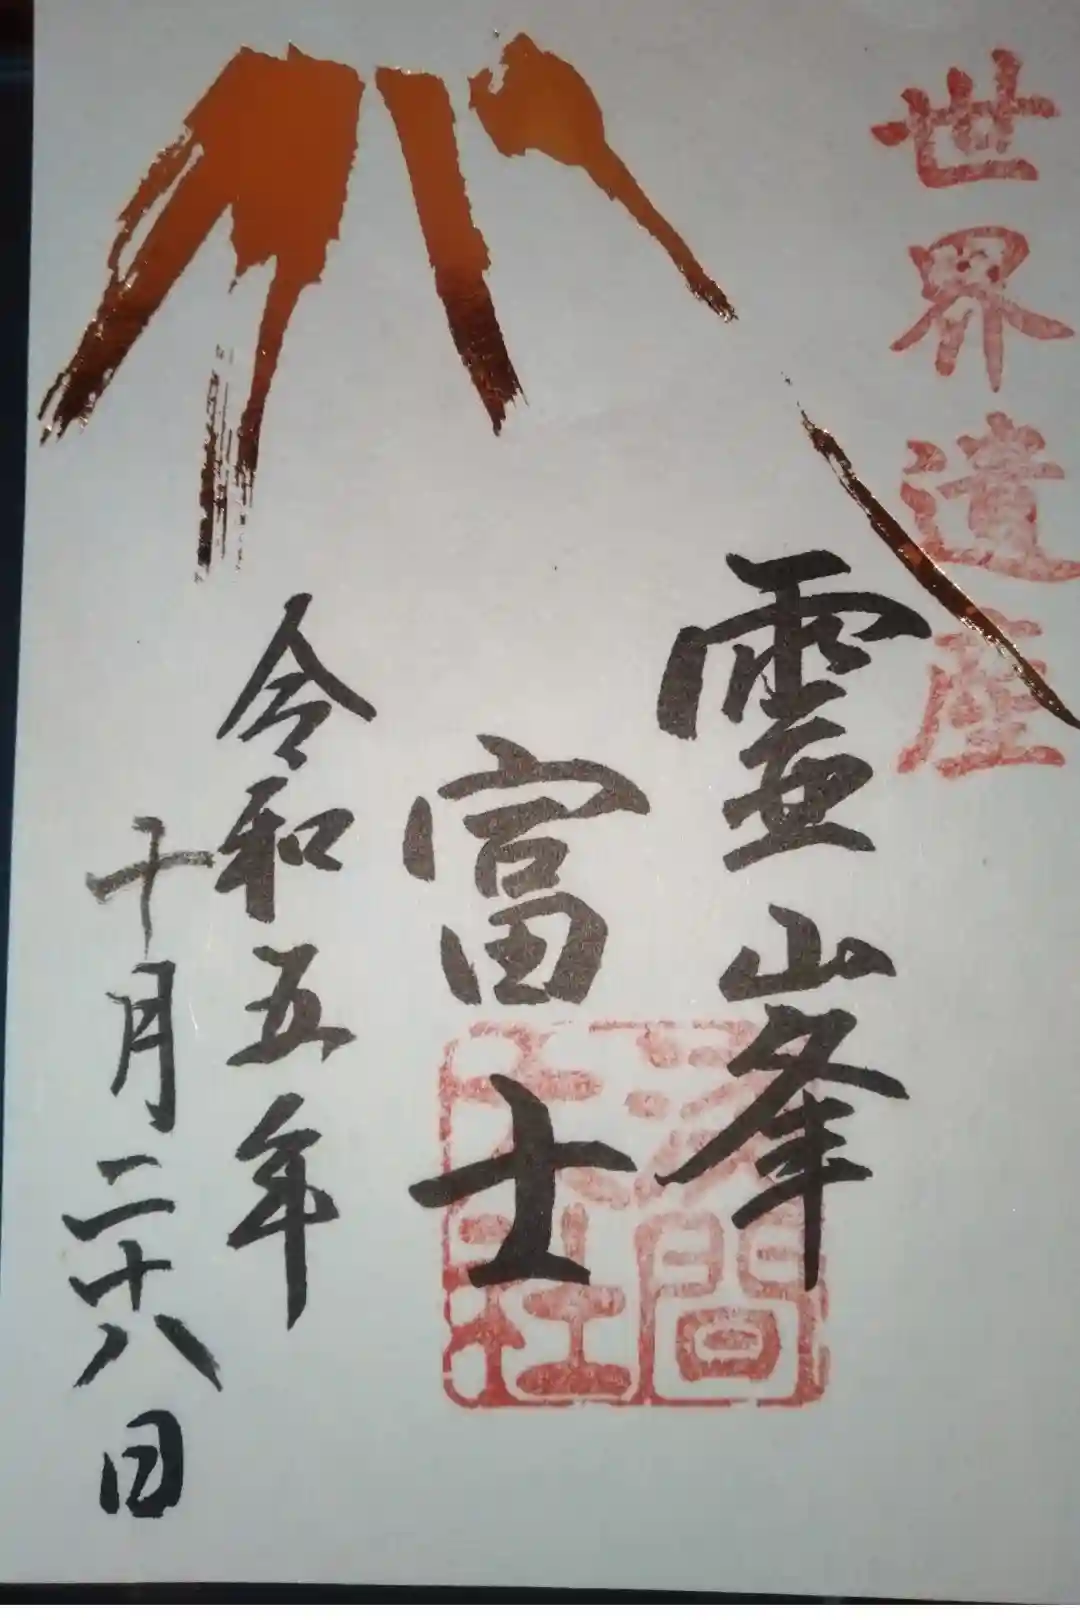 世界遺産
霊峯
富士
浅間
大社
令和五年
十月二十八日